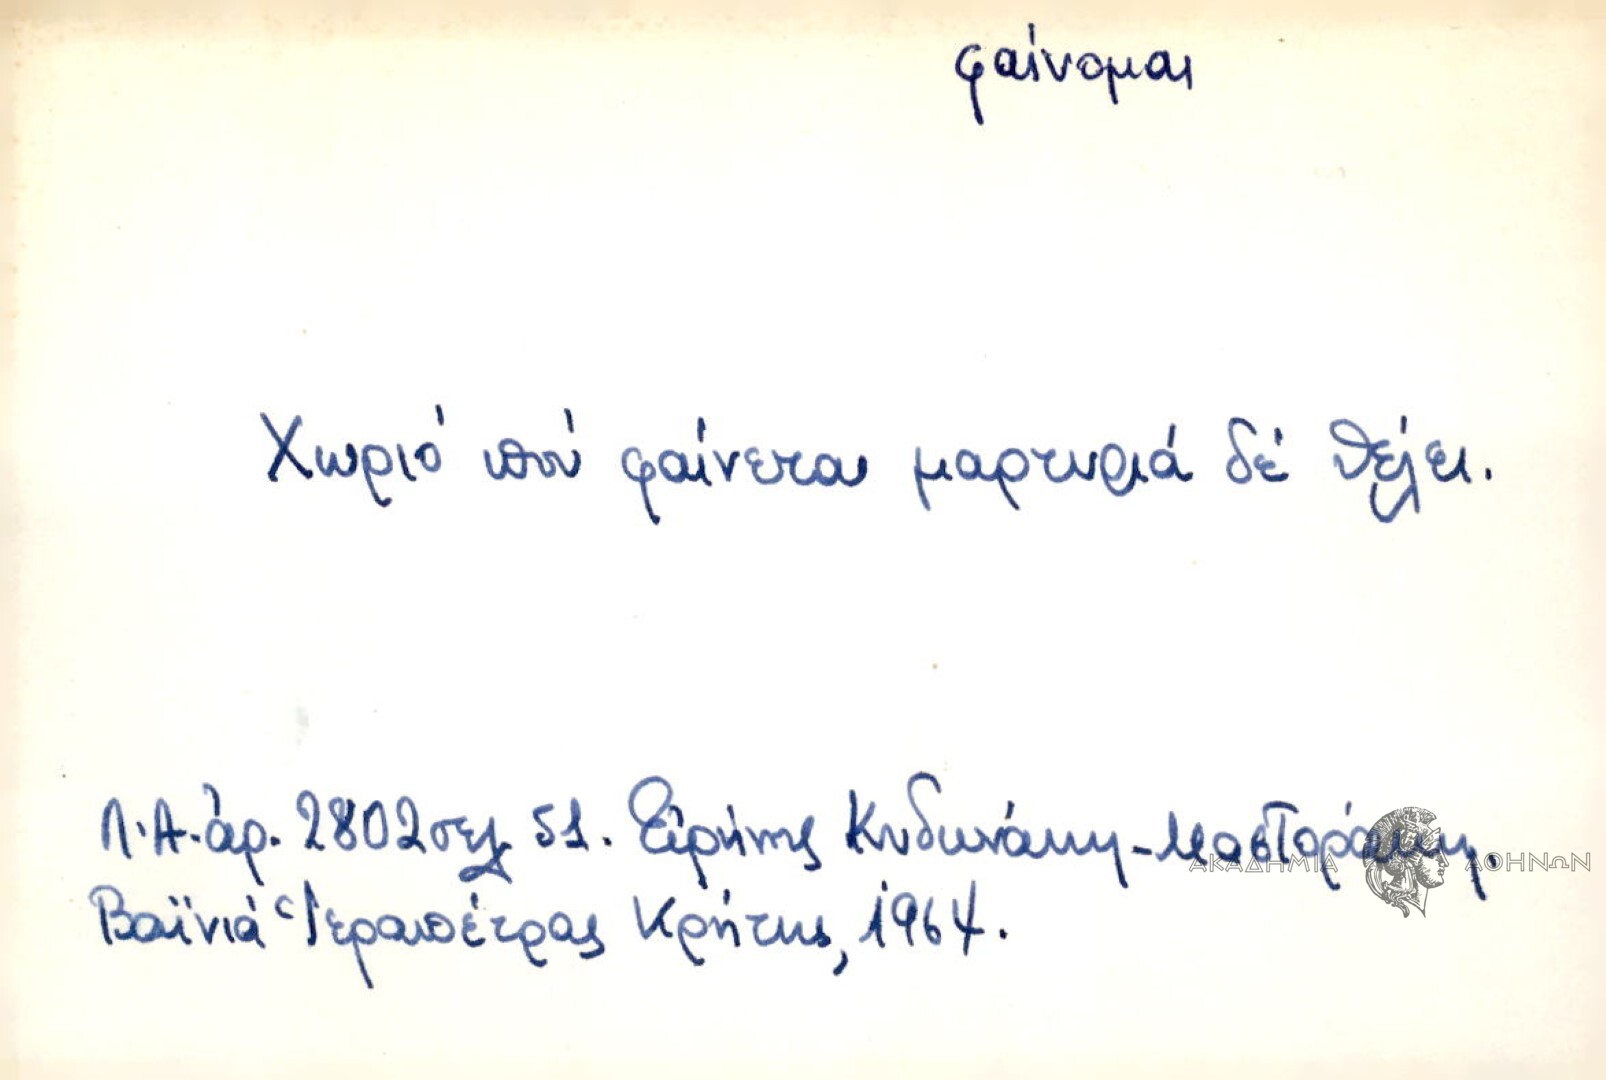 φαίνομαι
Χωριό πού φαίνεται μαρτυριά δέ θέλει.
Λ.Α. ἀρ. 2802 σελ. 51. Εἰρήνης Κυδωνάκη-Μαστοράκη.
Βαϊνιά Ἱεραπέτρας Κρήτης, 1964.
ΑΚΑΔΗΜΙΑ ΑΘΗΝΩΝ